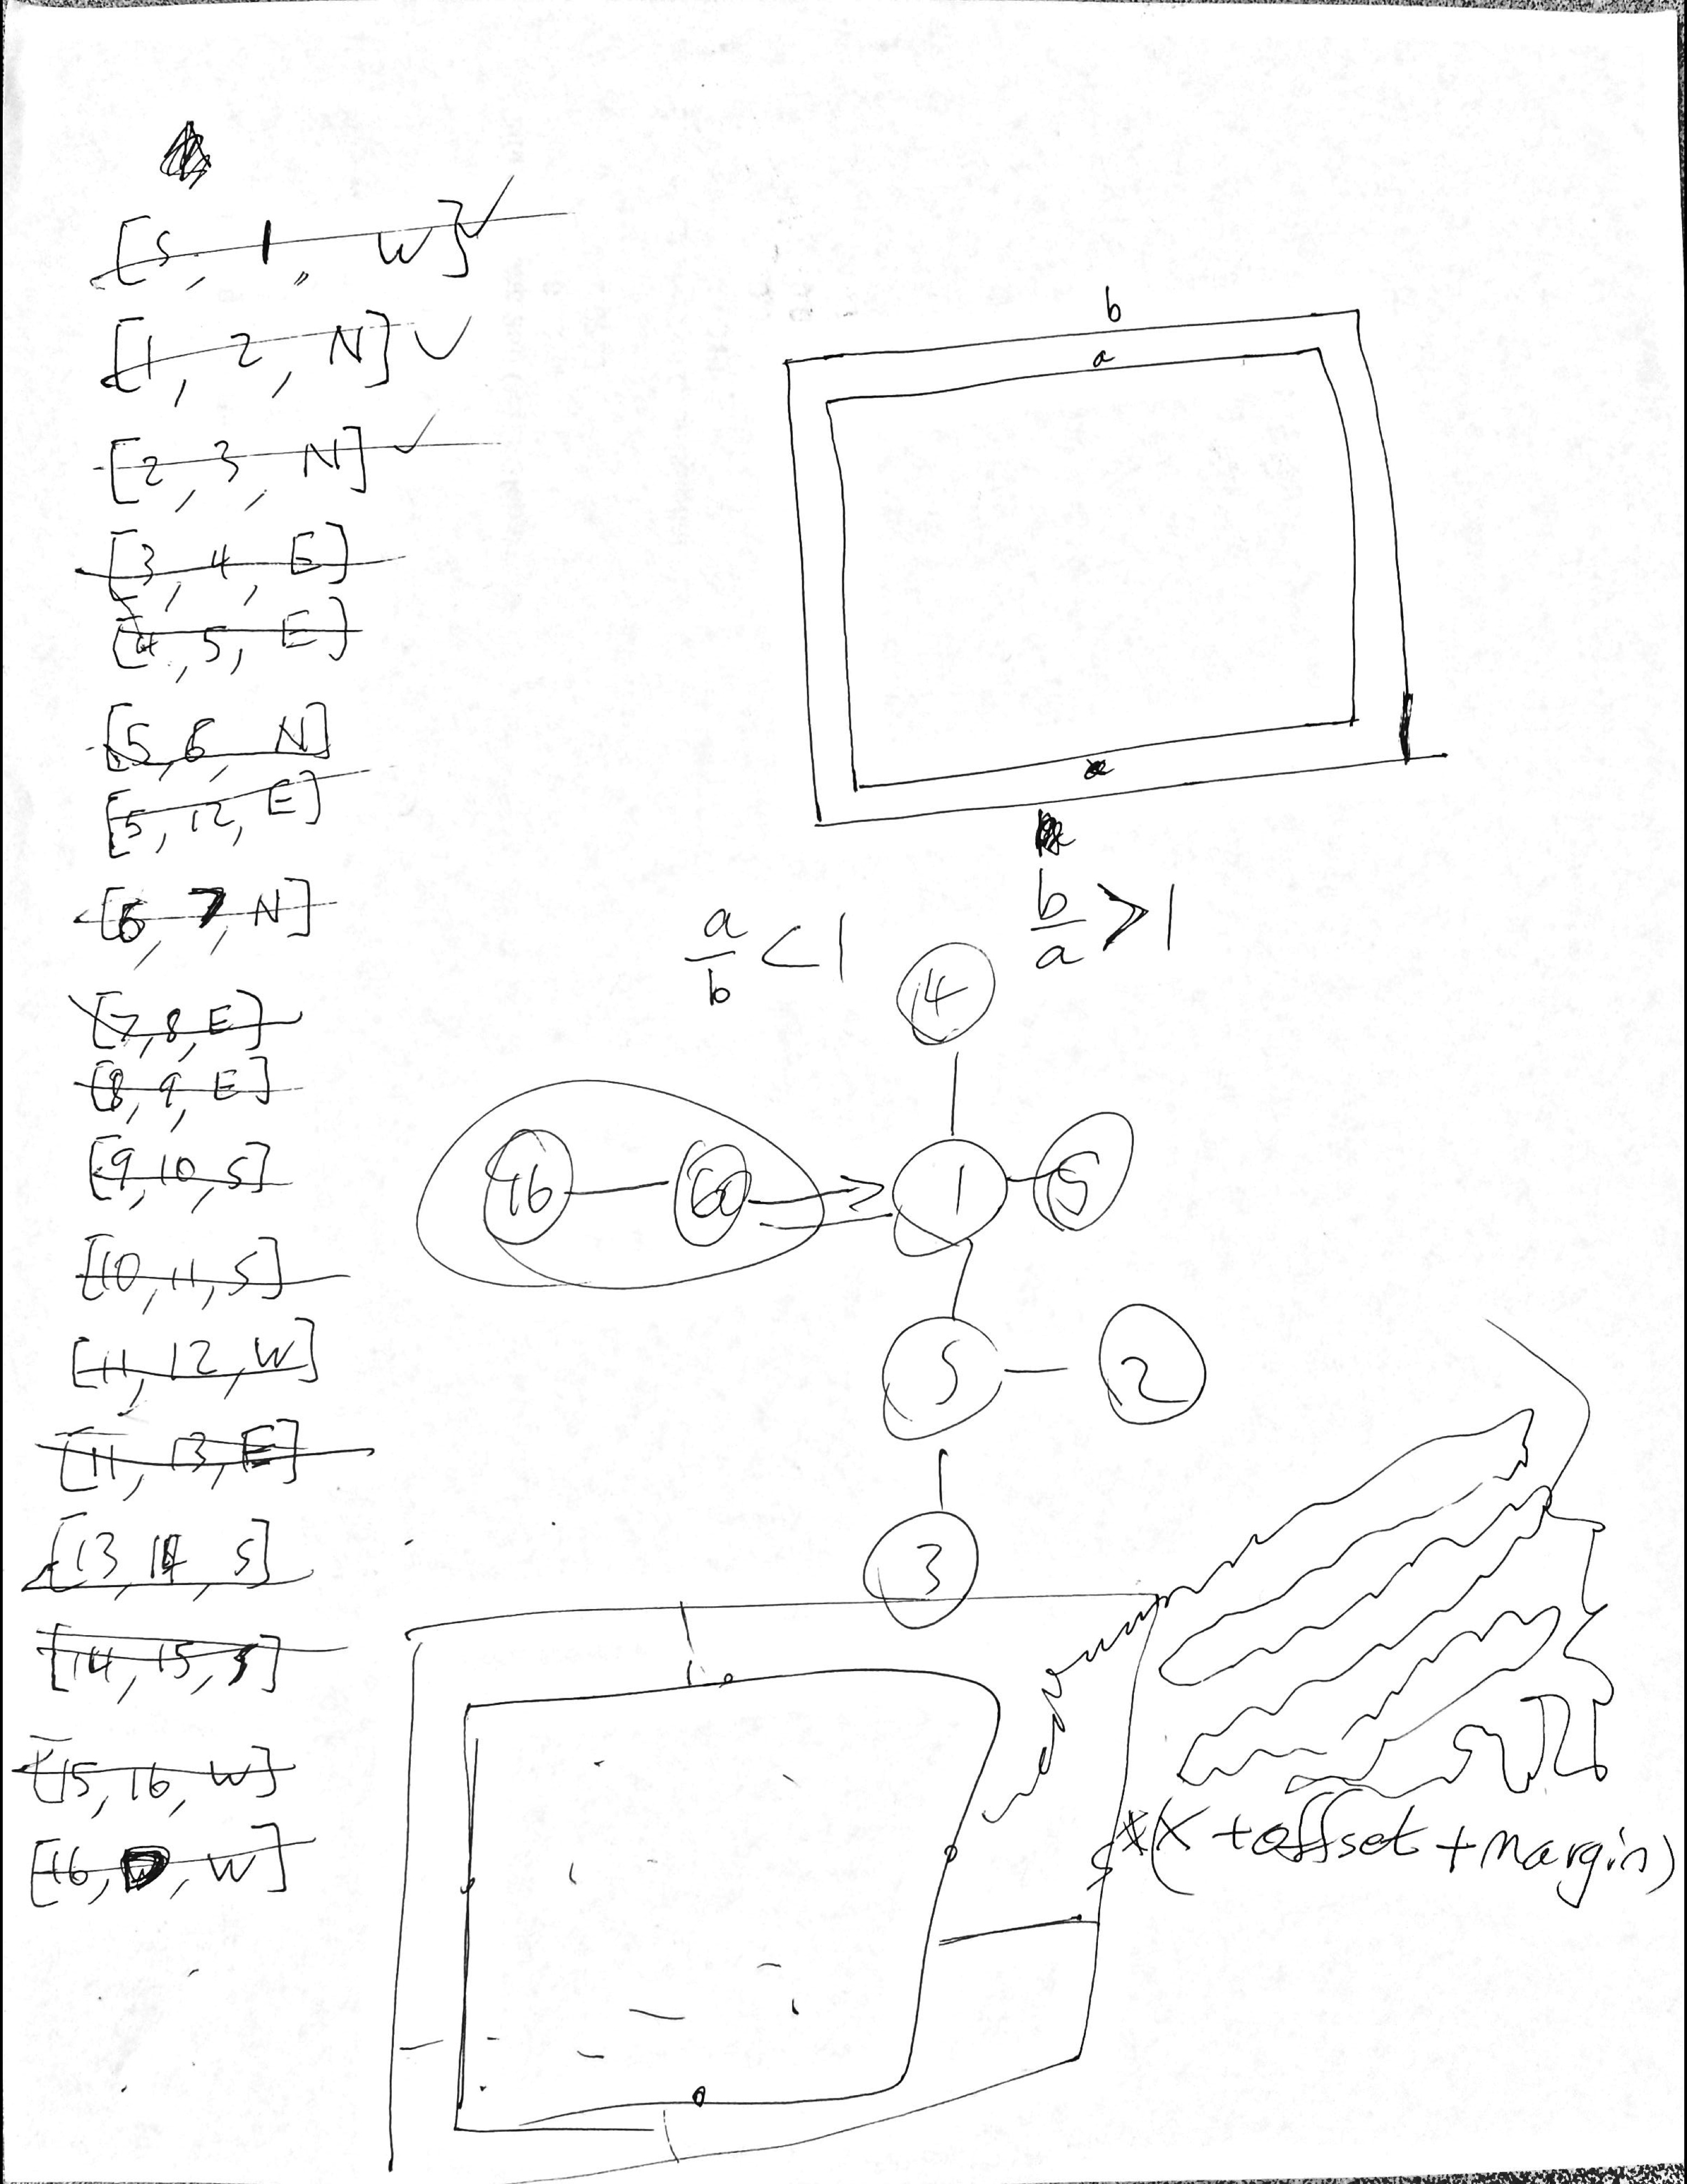 [S, 1, W]
[1, 2, N]
[2, 3, N]
[3, 4, E]
[4, 5, E]
[5, 6, N]
[5, 12, E]
[6, 7, N]
[7, 8, E]
[8, 9, E]
[9, 10, S]
[10, 11, S]
[11, 12, W]
[11, 13, E]
[13, 14, S]
[14, 15, S]
[15, 16, W]
[16, , W]
b
a
a/b < 1
b/a > 1
4
16
1
5
S
2
3
(X + offset + margin)